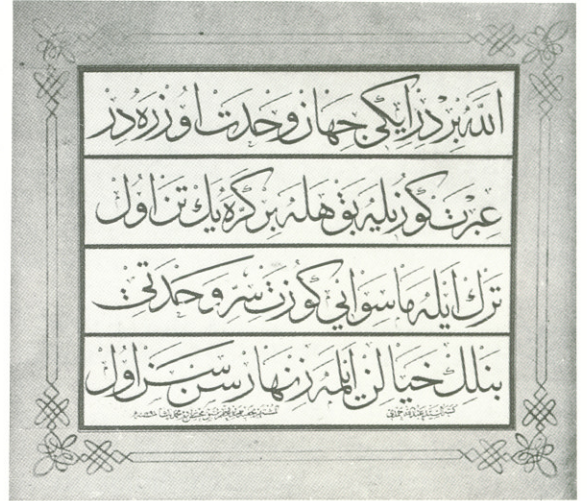 الله بر در ایکی جهان وحدت اوزره در
عبرت كوزیله بق هله بر كره یك تن اول
ترك ایله ماسوایی كوزت سر وحدتی
بنلك خیالن ایلمه زنهار سن سن اول